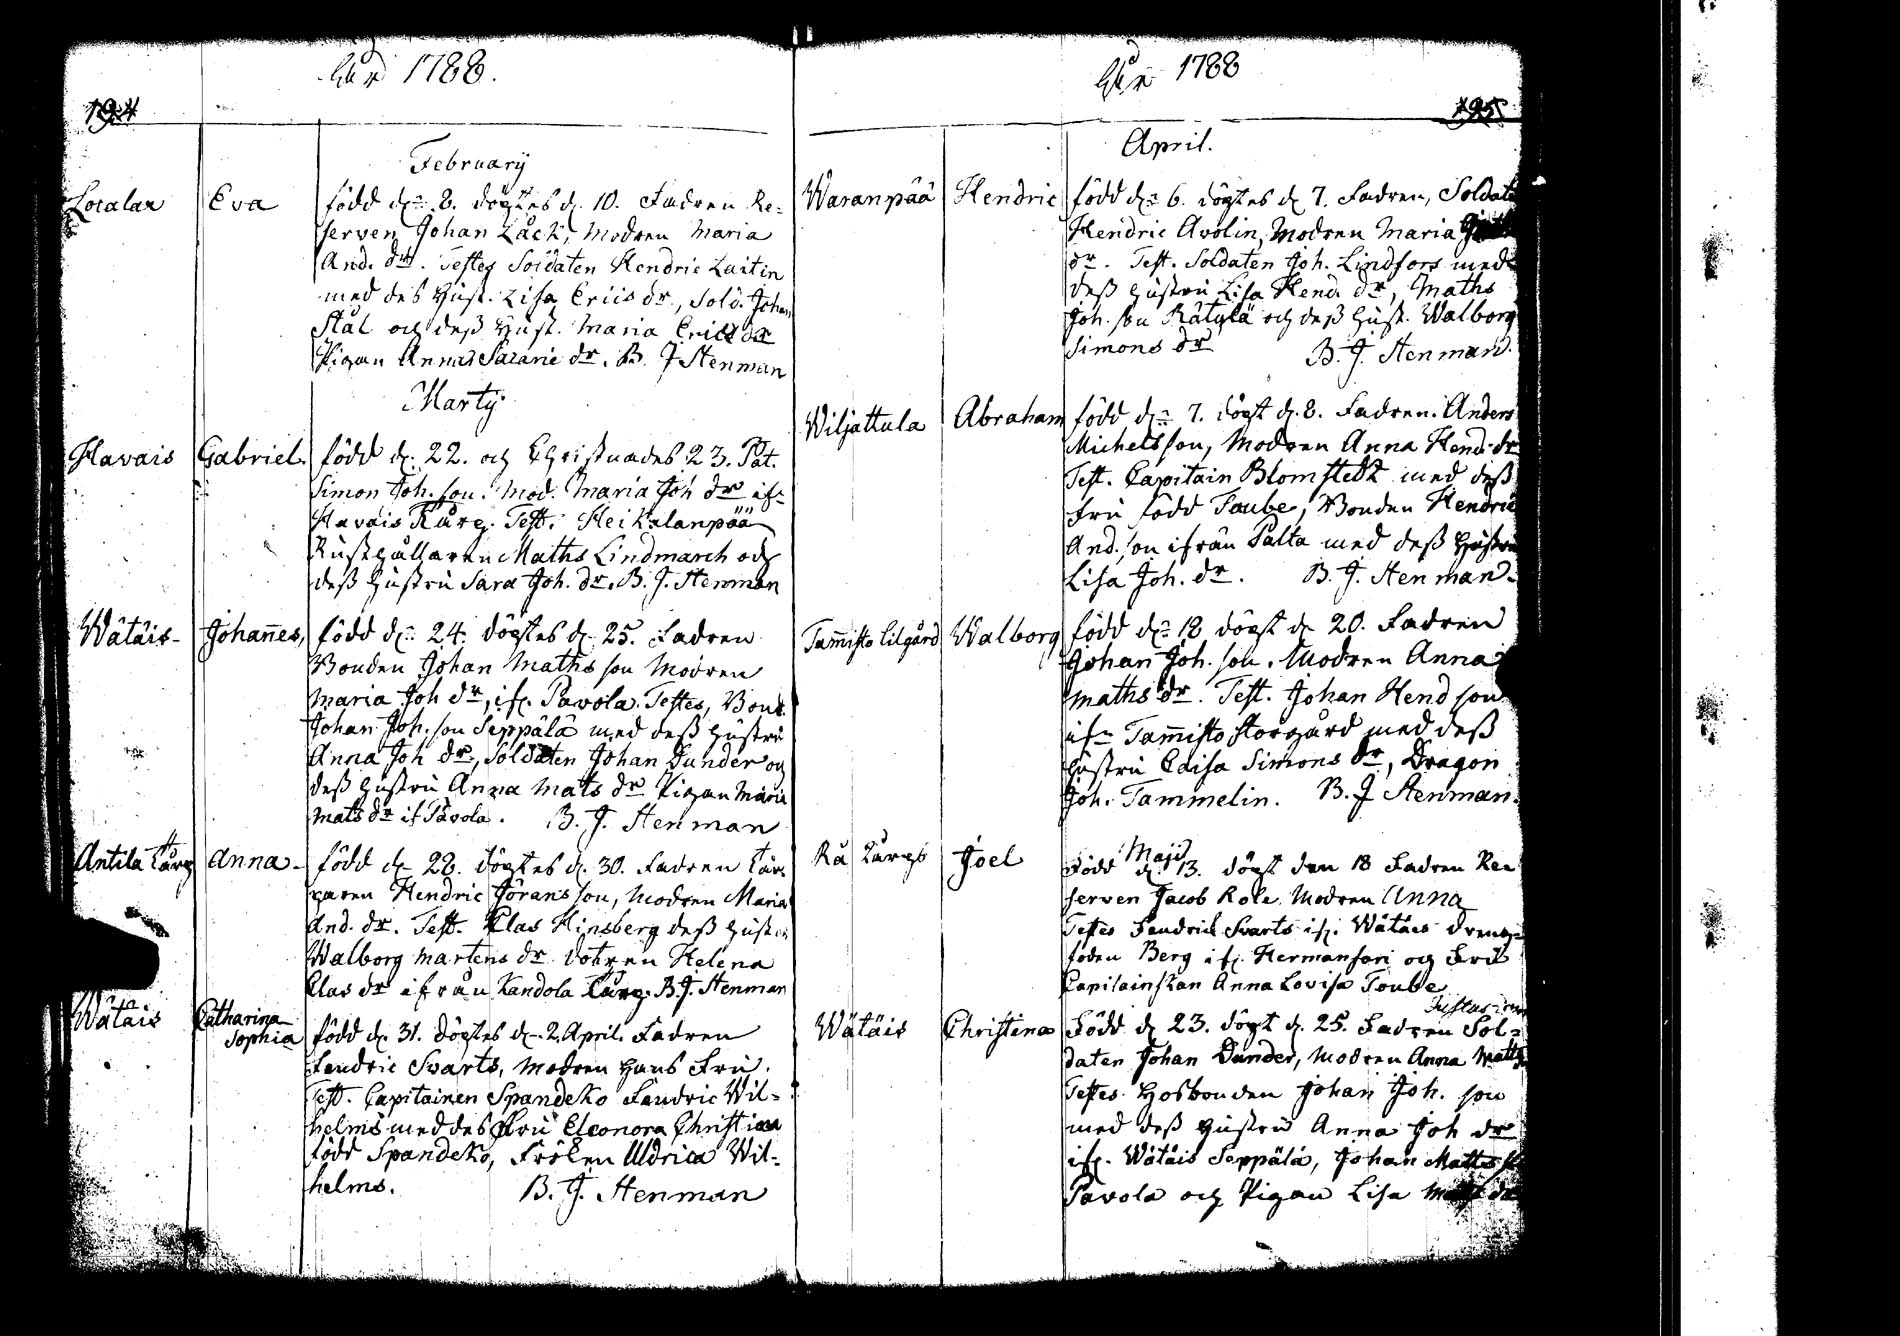 194
Åhr 1788.
February
Localax Eva född d. 8. döptes d. 10. Fadren Re-
serven Johan Läck, Modren Maria
And. dr. Testes Soldaten Hendric Laitin
med des Hust. Lisa Erics dr, Sold. Johan
Stål och dess Hust. Maria Erics dr
Pigan Anna Sacarie dr. B. J Stenman
Martij
Havais Gabriel. född d. 22. och Christnades 23. Pat.
Simon Joh. son. Mod. Maria Joh dr if:
Havais Kårg. Test. Heikalanpää
Rusthållaren Maths Lindmarch och
dess hustru Sara Joh. dr. B. J. Stenman
Wätäis Johannes, född d. 24. döptes d. 25. Fadren
Bonden Johan Maths son Modren
Maria Joh dr, if. Pavola. Testes, Bond.
Johan Joh. son Seppälä med dess hustru
Anna Joh dr, Soldaten Johan Dunder och
dess hustru Anna Mats dr Pigan Maria
Mats dr if Pavola. B. J. Stenman
Antila Tårp Anna född d 28. döptes d. 30. Fadren Tår-
paren Hendric Jörans son, Modren Maria
And. dr. Test. Clas Hinsberg dess hustru
Walborg Martens dr dotren Helena
Clas dr ifrån Kandola Tårp. B. J. Stenman
Wätäis Catharina
Sophia född d. 31. döptes d. 2. April. Fadren
Fendric Svarts, Modren hans Fru.
Test. Capitainen Spandeko Fendric Wil-
helms med des Fru Eleonora Christina
född Spandeko, Fröken Uldrica Wil-
helms. B. J. Stenman
195
Åhr 1788
April.
Waranpää Hendric född d. 6. döptes d 7. Fadren, Soldat
Hendric Avolin, Modren Maria
dr. Test. Soldaten Joh. Lindfors med
dess hustru Lisa Hend. dr, Maths
Joh. son Rätylä och dess hust. Walborg
Simons dr B. J. Stenman.
Wiljattula Abraham född d. 7. döpt d. 8. Fadren. Anders
Michels son, Modren Anna Hend. dr
Test. Capitain Blomstedt med dess
Fru född Taube, Bonden Hendric
And. son ifrån Palta med dess Hustru
Lisa Joh. dr. B. J. Stenman.
Tamisto Lilgård Walborg född d. 18 döpt d 20. Fadren
Johan Joh. son. Modren Anna
Maths dr. Test. Johan Hend son
ifn Tamisto Storgård med dess
hustru Caisa Simons dr, Dragon
Joh. Tammelin. B. J Stenman.
Maji
Rå Joel Född d. 13. döpt den 18 Fadren Re-
serven Jacob Role Modren Anna
Testes Fendrick Svarts if. Wätäis
Berg if. Hermansari och Fru
Capitainskan Anna Lovisa Toube
Wätäis Christina Född d 23. döpt d. 25. Fadren Sol-
daten Johan Dunder, Modren Anna Matts
Testes Hosbonden Johan Joh. son
med dess hustru Anna Joh dr
if. Wätäis Seppälä, Johan Matts
Pavola och Pigan Lisa Matts dr